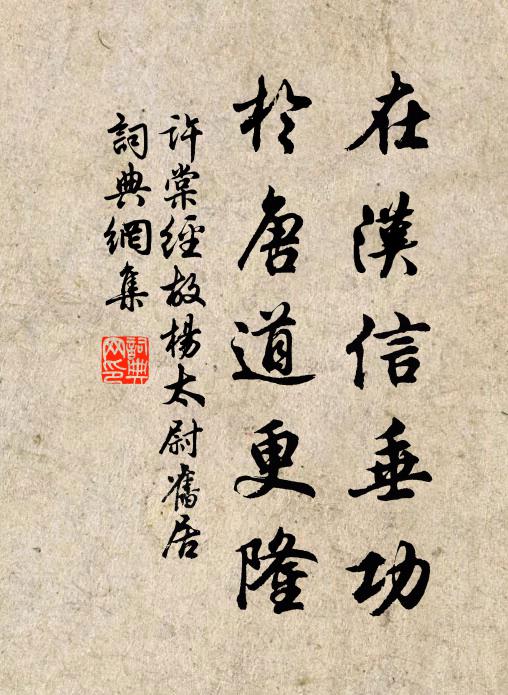 在漢信垂功
於唐道更隆
許棠經故楊太尉舊居
詞典網集
詞典網印